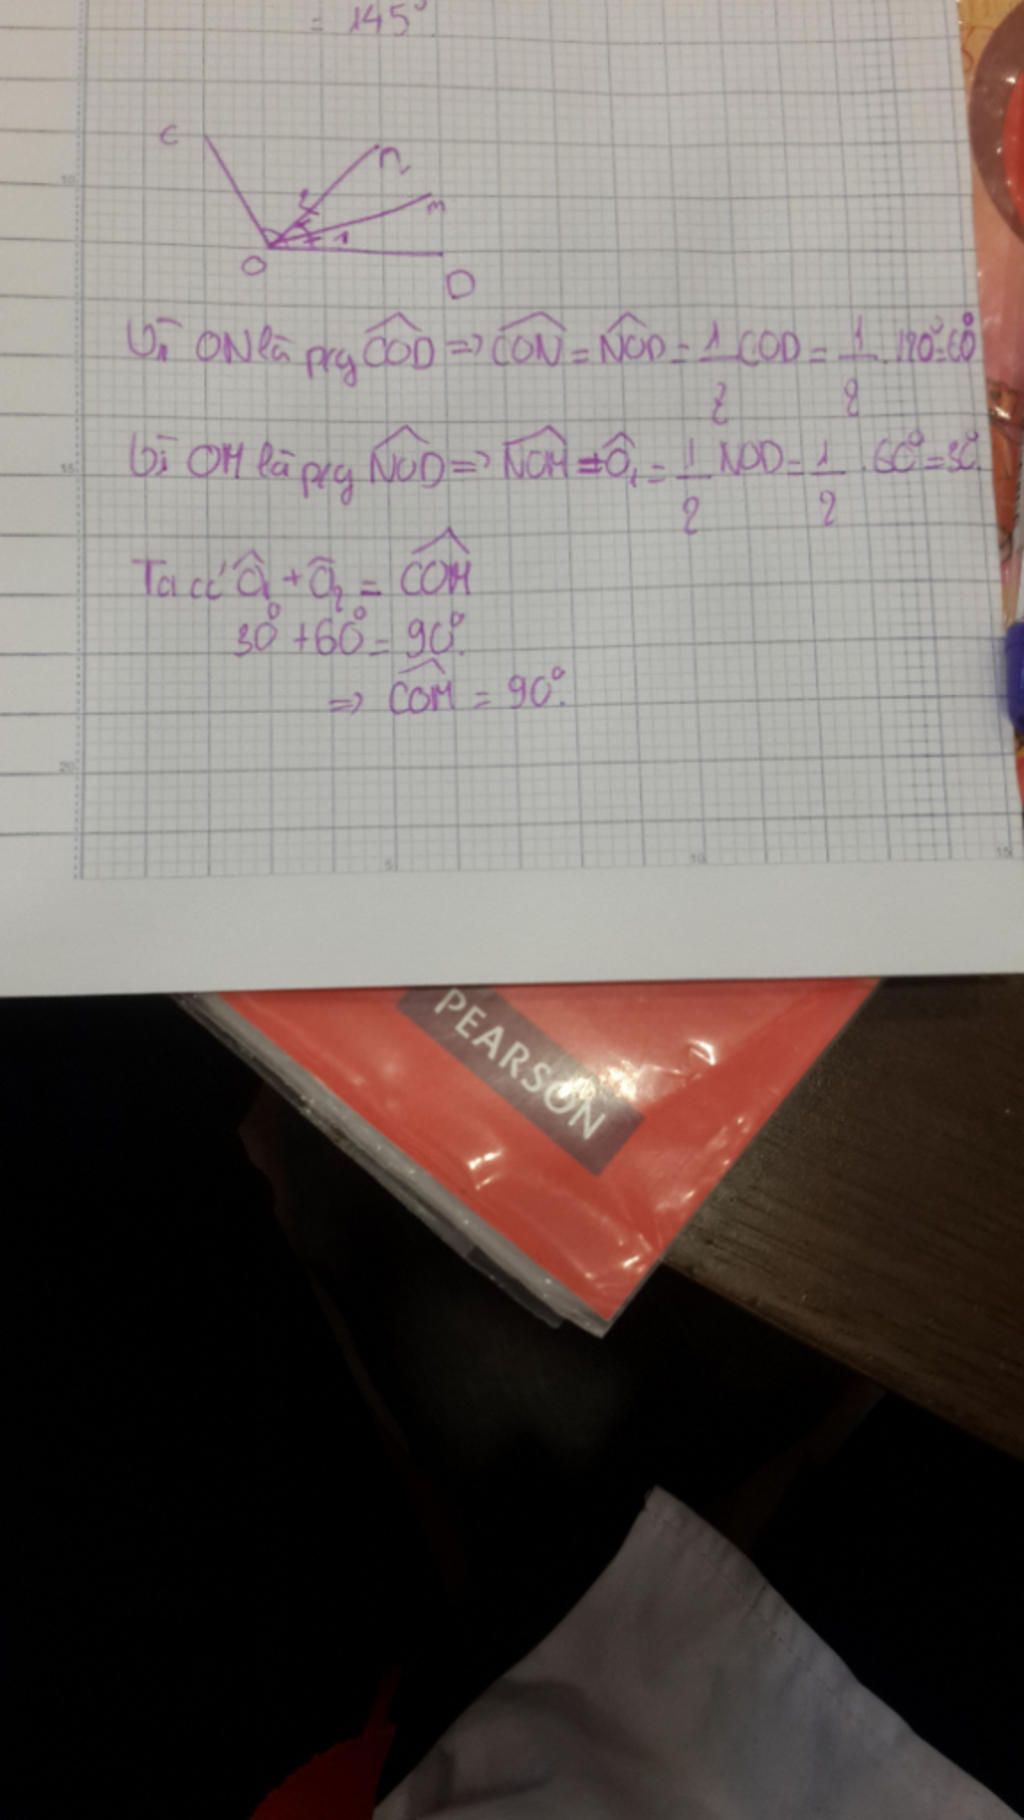 = 145°.
C
n
2
m
1
O
D
Vì ON là pg COD => CON = NOD = 1/2 COD = 1/2 . 120° = 60°
Vì OM là pg NOD => NOM = Ô₁ = 1/2 NOD = 1/2 . 60° = 30°.
Ta có Ô₁ + Ô₂ = COM
30° + 60° = 90°.
=> COM = 90°.
10
15
20
5
10
15
PEARSON